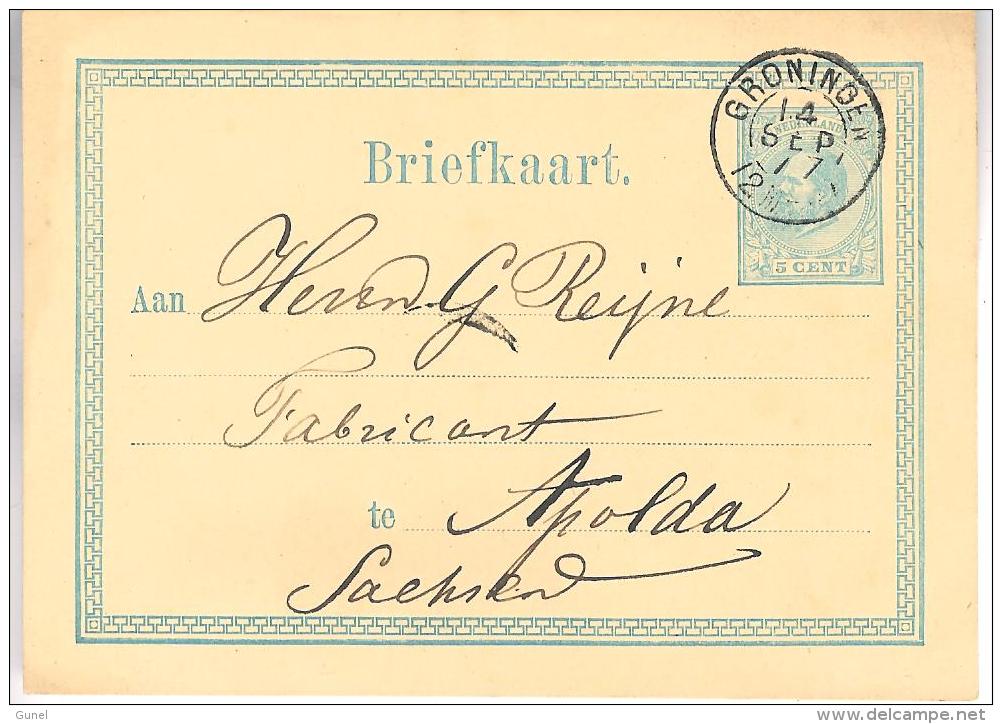 GRONINGEN
14
SEP
77
NEDERLAND
Briefkaart.
5 CENT
Aan Herrn G Reijne
Fabricant
te Apolda
Sachsen
Gunel
www.delcampe.net